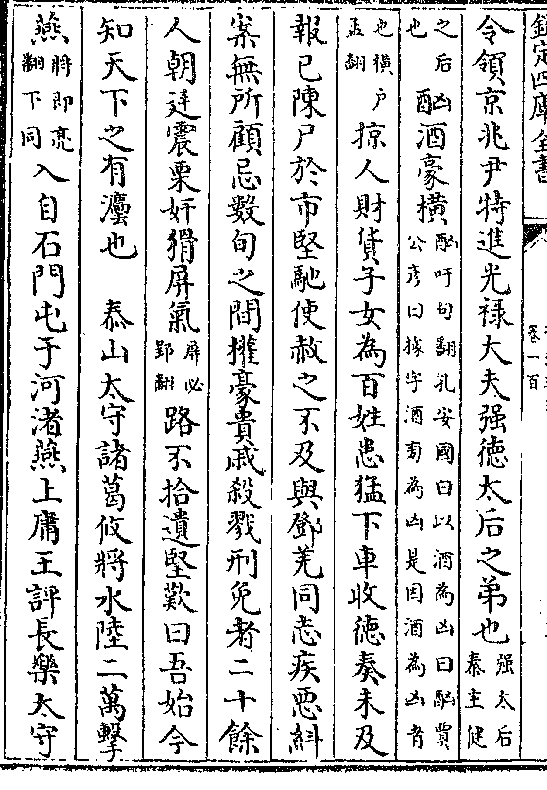 欽定四庫全書
卷一百
令領京兆尹特進光祿大夫强德太后之弟也强太后秦主健
之后也酗凶酒豪橫酗吁句翻孔安國曰以酒為凶曰酗賈公彦曰據字酒旁為凶是因酒為凶者
也橫戶孟翻掠人財貨子女為百姓患猛下車收德奏未及
報已陳尸於市堅馳使赦之不及與鄧羌同志疾惡糾
案無所顧忌數旬之間權豪貴戚殺戮刑免者二十餘
人朝廷震栗奸猾屏氣屏必郢翻路不拾遺堅歎曰吾始今
知天下之有灋也　泰山太守諸葛攸將水陸二萬擊
燕將即亮翻下同入自石門屯于河渚燕上庸王評長樂太守